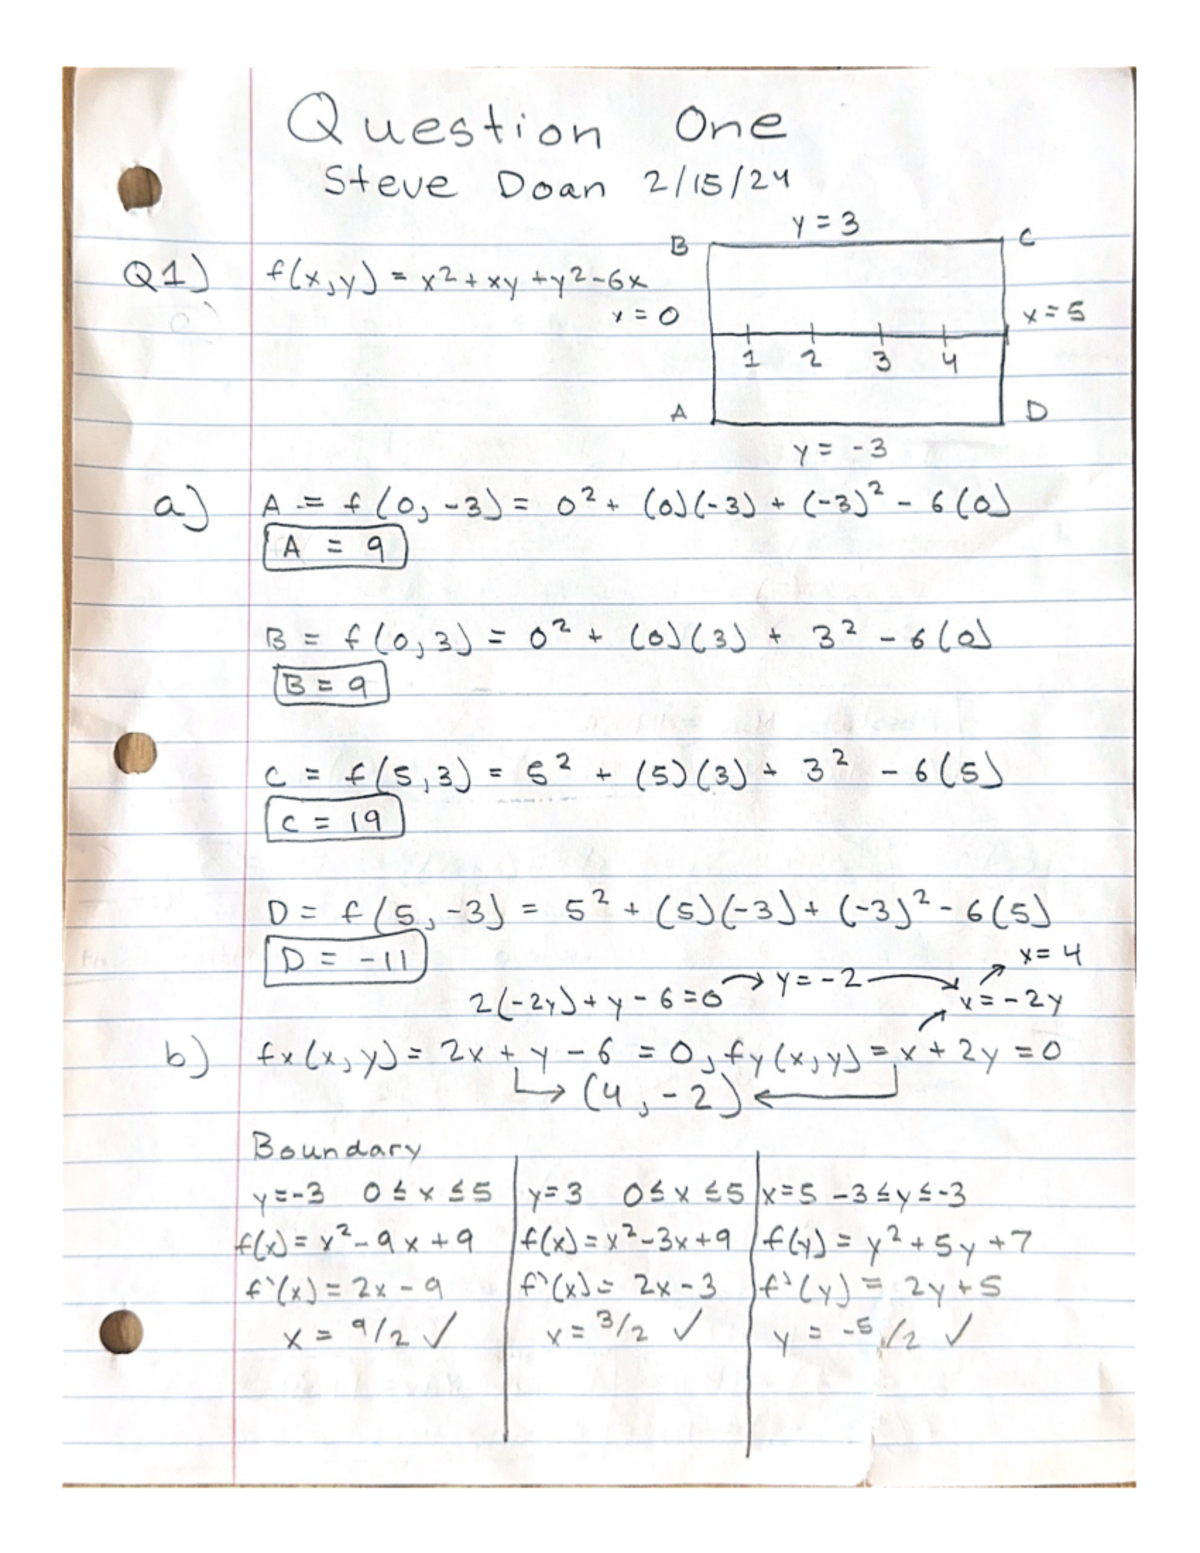 Question One
Steve Doan 2/15/24
y = 3
B C
Q1) f(x,y) = x² + xy + y² - 6x
x = 0 x = 5
1 2 3 4
A D
y = -3
a) A = f(0, -3) = 0² + (0)(-3) + (-3)² - 6(0)
A = 9
B = f(0,3) = 0² + (0)(3) + 3² - 6(0)
B = 9
C = f(5,3) = 5² + (5)(3) + 3² - 6(5)
C = 19
D = f(5,-3) = 5² + (5)(-3) + (-3)² - 6(5)
D = -11
x = 4
2(-2y) + y - 6 = 0 → y = -2 → x = -2y
b) fx(x,y) = 2x + y - 6 = 0, fy(x,y) = x + 2y = 0
(4, -2)
Boundary
y = -3 0 ≤ x ≤ 5
f(x) = x² - 9x + 9
f'(x) = 2x - 9
x = 9/2 ✓
y = 3 0 ≤ x ≤ 5
f(x) = x² - 3x + 9
f'(x) = 2x - 3
x = 3/2 ✓
x = 5 -3 ≤ y ≤ -3
f(y) = y² + 5y + 7
f'(y) = 2y + 5
y = -5/2 ✓